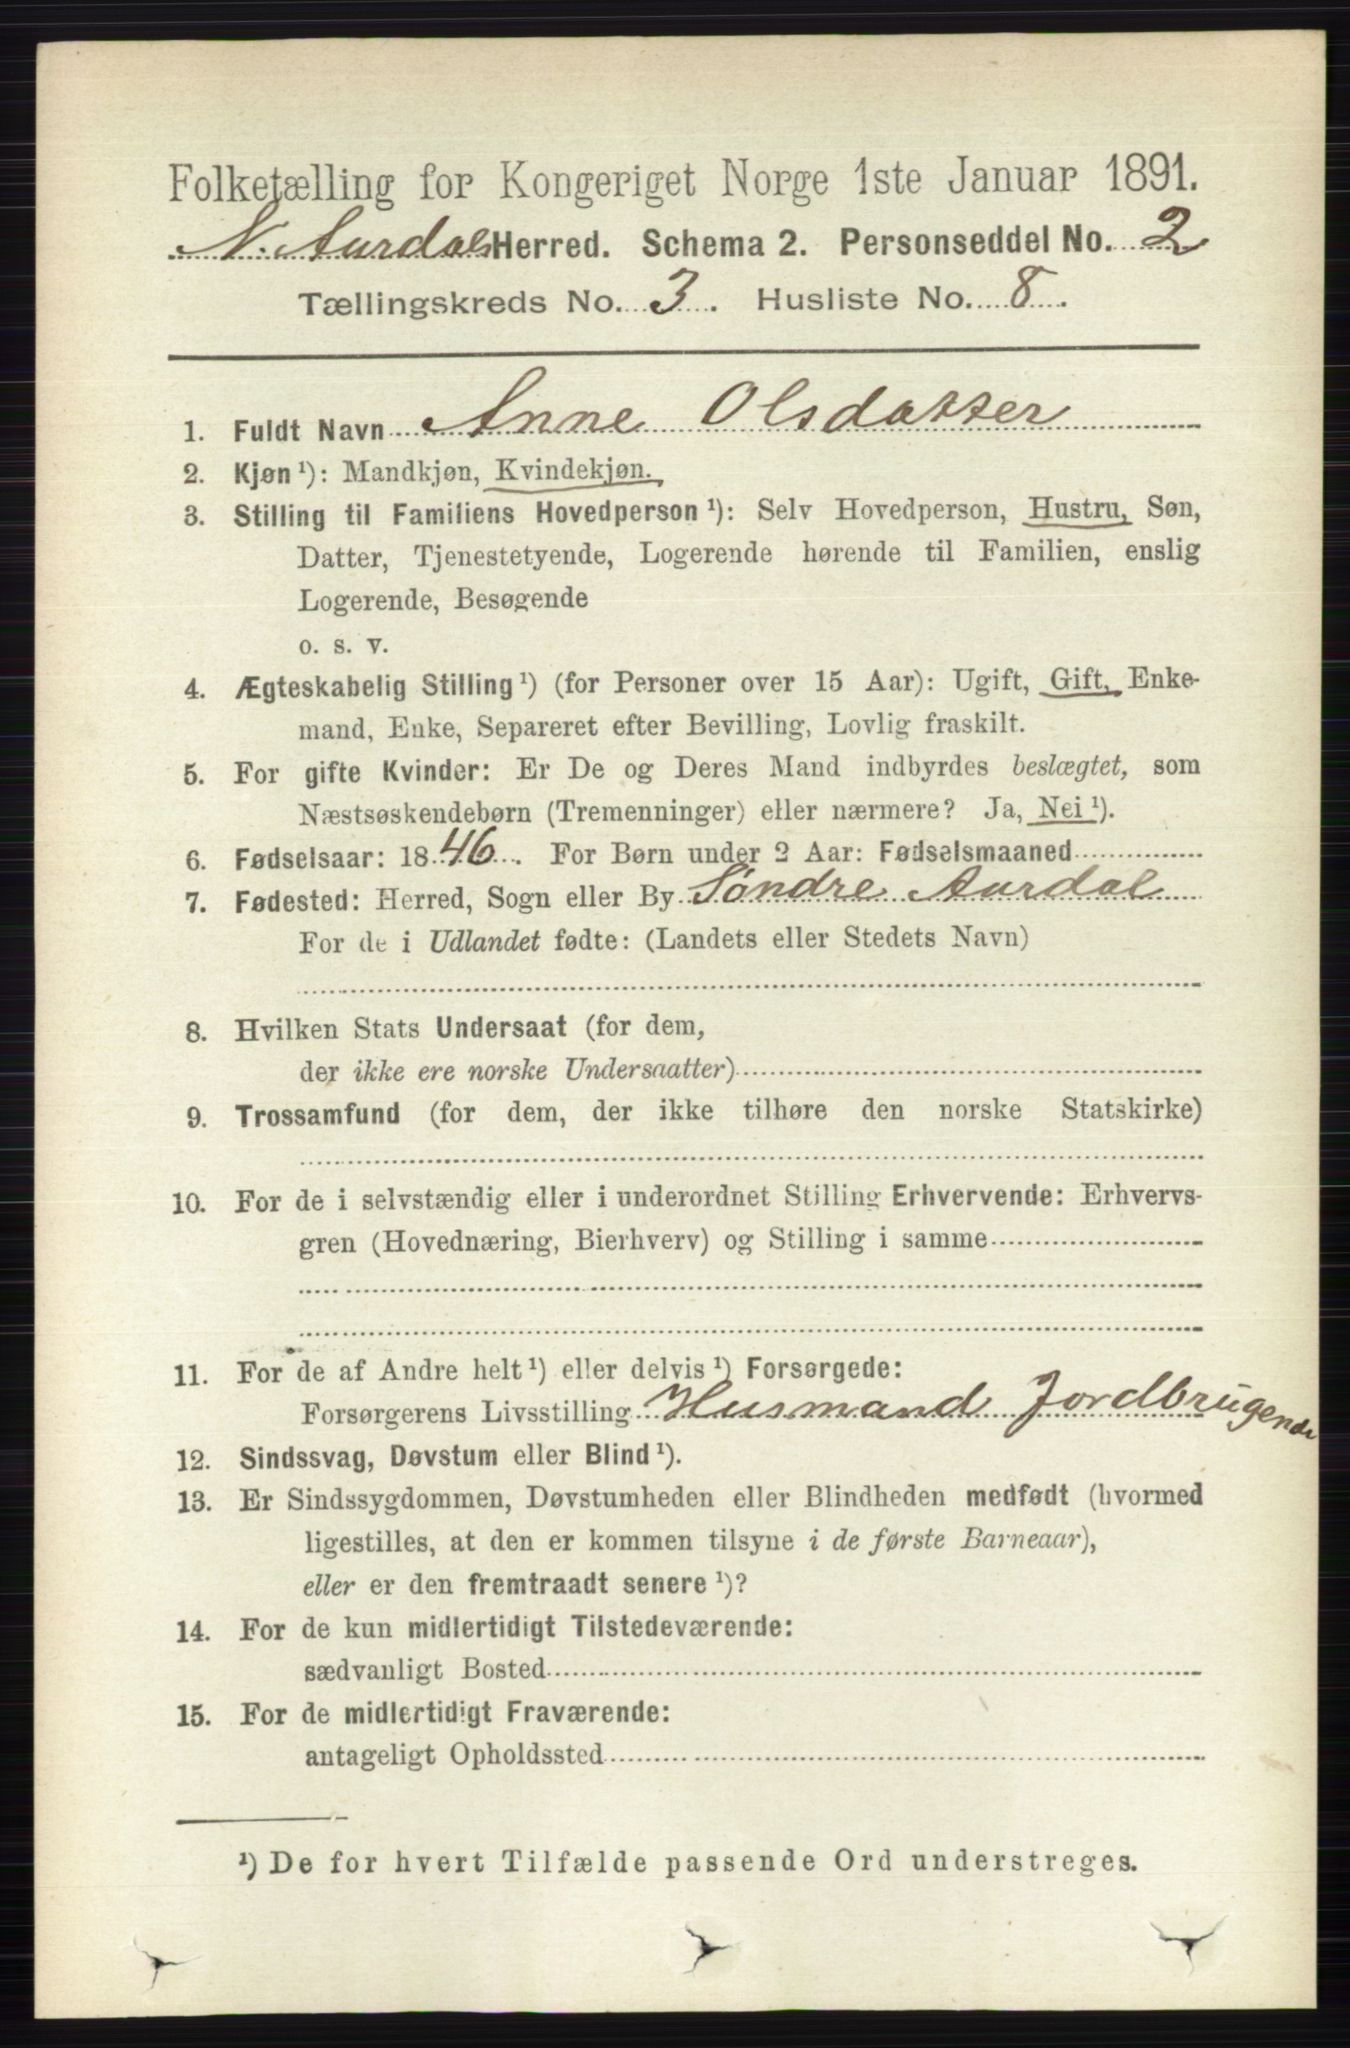 Folketælling for Kongeriget Norge 1ste Januar 1891.
N. Aurdal Herred. Schema 2. Personseddel No. 2
Tællingskreds No. 3. Husliste No. 8.
1. Fuldt Navn Anne Olsdatter
2. Kjøn ¹): Mandkjøn, Kvindekjøn.
3. Stilling til Familiens Hovedperson ¹): Selv Hovedperson, Hustru, Søn,
Datter, Tjenestetyende, Logerende hørende til Familien, enslig
Logerende, Besøgende
o. s. v.
4. Ægteskabelig Stilling ¹) (for Personer over 15 Aar): Ugift, Gift, Enke-
mand, Enke, Separeret efter Bevilling, Lovlig fraskilt.
5. For gifte Kvinder: Er De og Deres Mand indbyrdes beslægtet, som
Næstsøskendebørn (Tremenninger) eller nærmere? Ja, Nei ¹).
6. Fødselsaar: 1846. For Børn under 2 Aar: Fødselsmaaned
7. Fødested: Herred, Sogn eller By Søndre Aurdal
For de i Udlandet fødte: (Landets eller Stedets Navn)
8. Hvilken Stats Undersaat (for dem,
der ikke ere norske Undersaatter)
9. Trossamfund (for dem, der ikke tilhøre den norske Statskirke)
10. For de i selvstændig eller i underordnet Stilling Erhvervende: Erhvervs-
gren (Hovednæring, Bierhverv) og Stilling i samme
11. For de af Andre helt ¹) eller delvis ¹) Forsørgede:
Forsørgerens Livsstilling Husmand Jordbrugende
12. Sindssvag, Døvstum eller Blind ¹).
13. Er Sindssygdommen, Døvstumheden eller Blindheden medfødt (hvormed
ligestilles, at den er kommen tilsyne i de første Barneaar),
eller er den fremtraadt senere ¹)?
14. For de kun midlertidigt Tilstedeværende:
sædvanligt Bosted
15. For de midlertidigt Fraværende:
antageligt Opholdssted
¹) De for hvert Tilfælde passende Ord understreges.